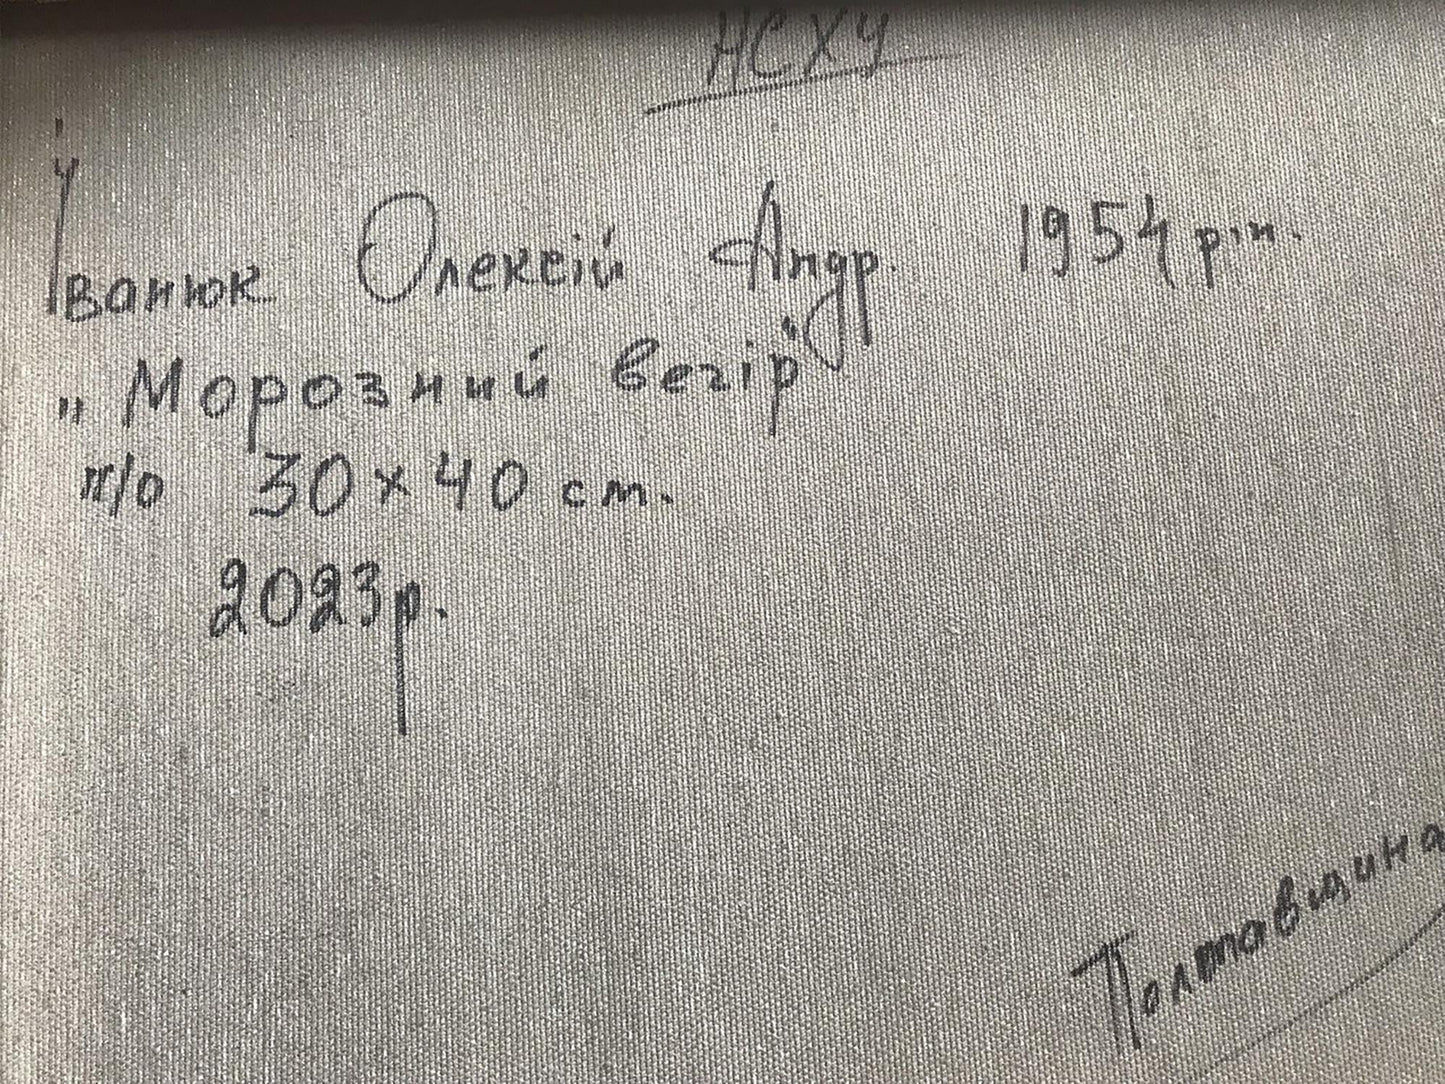 НСХУ
Іванюк Олексій Андр. 1954 р.н.
„Морозний вечір"
п/о 30×40 см.
2023р.
Полтавщина